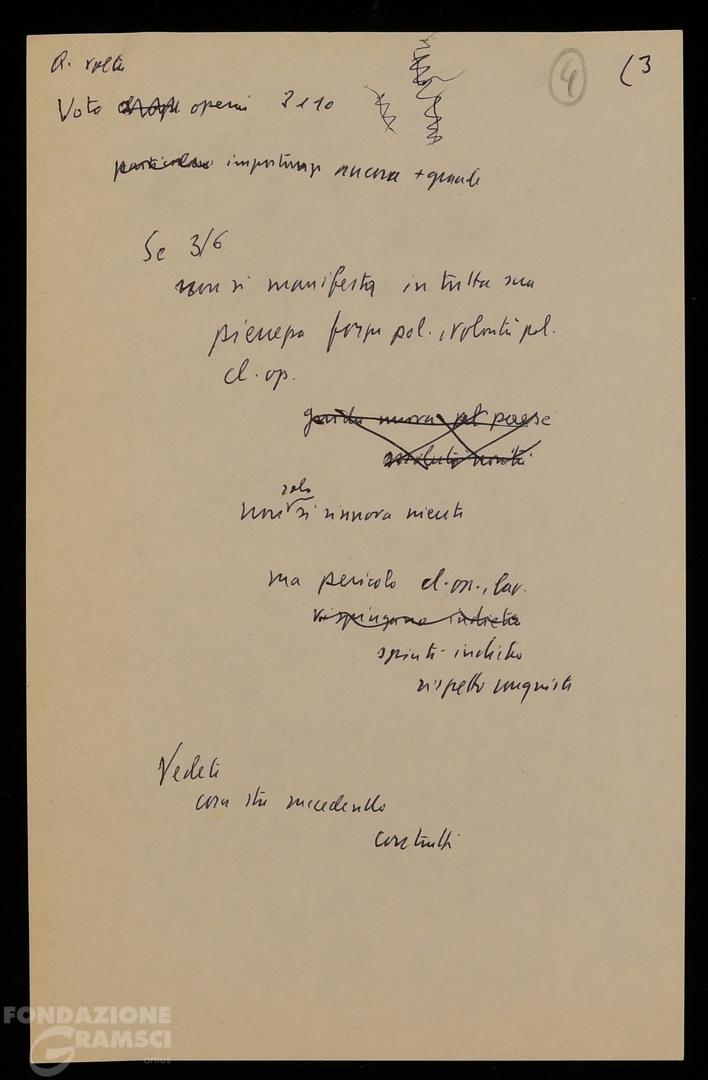 Q. volta
④ (3
Voto operai 3 e 10
particolare importanza ancora + grande
Se 3/6
non si manifesta in tutta sua
pienezza forza pol., volontà pol.
cl. op.
guida nuova pel paese
non solo si rinnova niente
ma pericolo cl. op., lav.
risospingano indietro
spinti indietro
rispetto conquiste
Vedete
cosa sta succedendo
contratti
FONDAZIONE
GRAMSCI
onlus